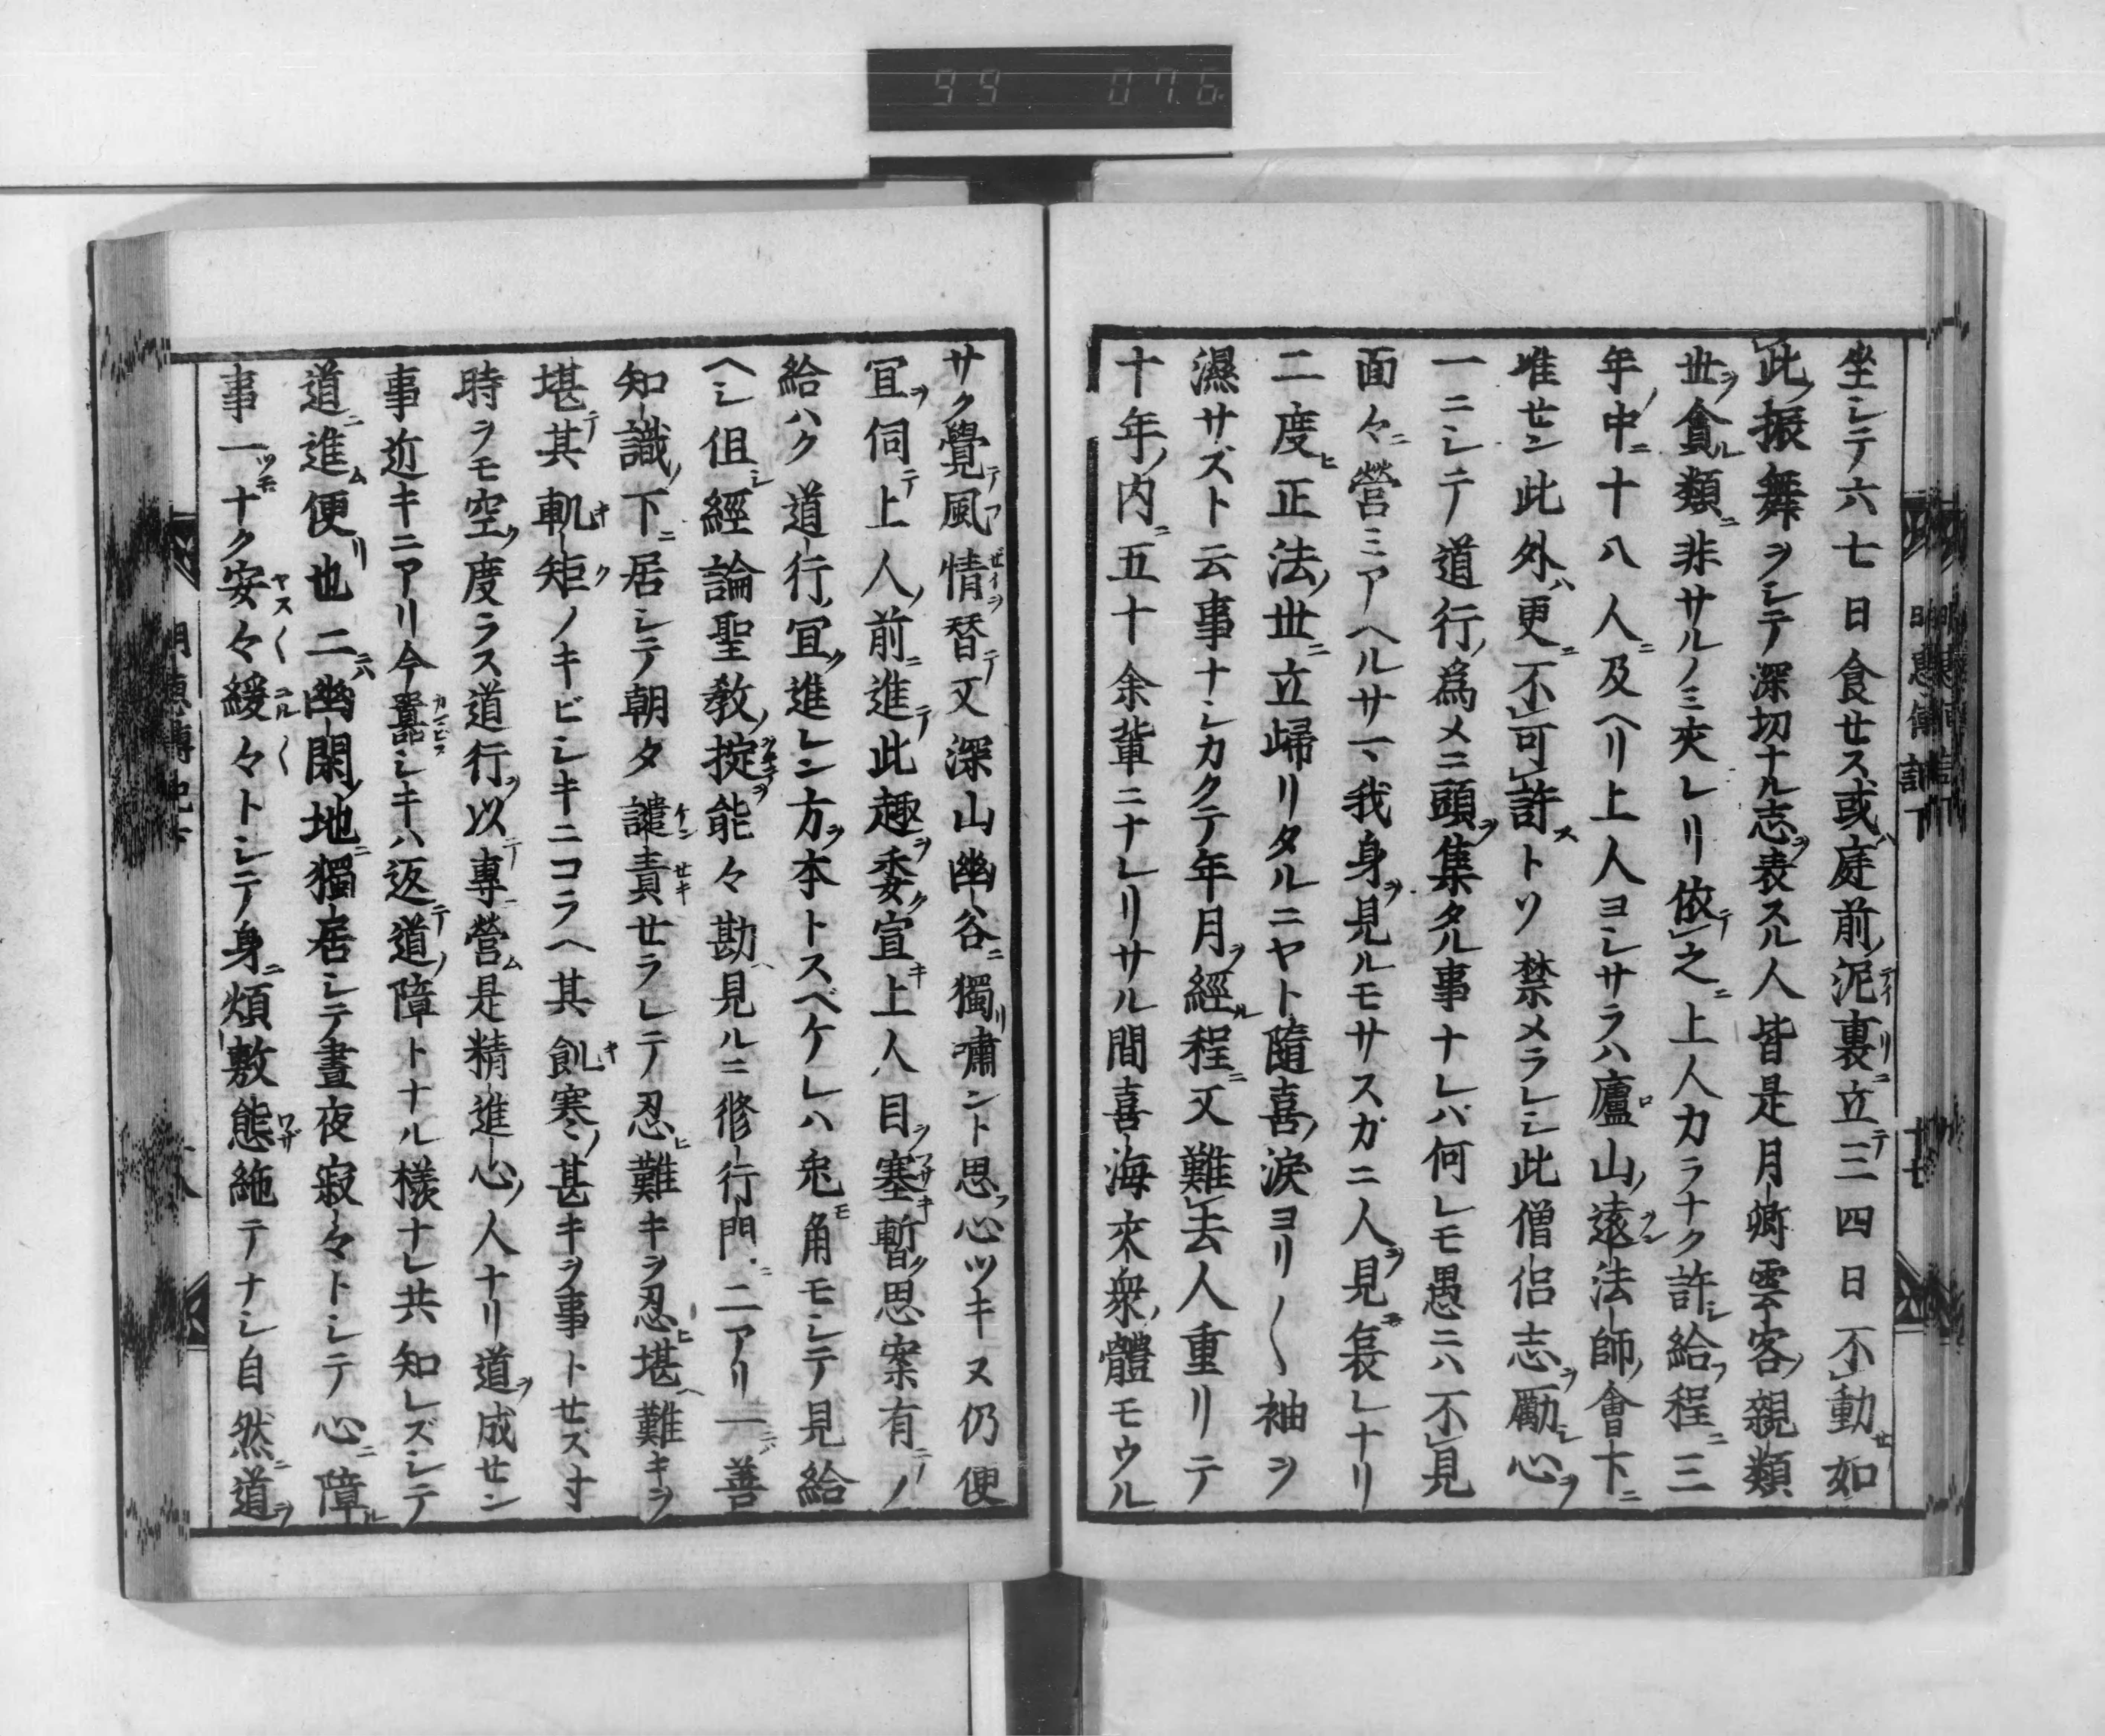 99 07.6
坐シテ六七日食セス或ハ庭前ノ泥裏ニ立テ三四日不動セ如
此ノ振舞ヲシテ深切ナル志ヲ表スル人皆是月卿雲客ノ親類
世ヲ貪ル類ニ非サルノミ来レリ依テ之ニ上人カラナク許シ給フ程ニ三
年ノ中ニ十八人ニ及ヘリ上人ヨシサラハ廬山ノ遠法師ノ會下ニ
唯セン此外ハ更ニ不可許ストソ禁メラレシ此僧侶志ヲ勵シ心ヲ
一ニシテ道行ノ爲メニ頭ヲ集タル事ナレハ何レモ愚ニハ不見
面々ニ營ミアヘルサマ我身ヲ見ルモサスガニ人ヲ見モ哀レナリ
二度ヒ正法ノ世ニ立歸リタルニヤト隨喜ノ涙ヨリ〱袖ヲ
濕サズト云事ナシカクテ年月ヲ經ル程ニ又難去人重リテ
十年ノ内ニ五十余輩ニナレリサル間喜海來衆ノ體モウル
サク覺テ風情ヲ替テ又深山幽谷ニ獨リ嘯ント思フ心ツキヌ仍便
宜ヲ伺テ上人ノ前ニ進テ此趣ヲ委ク宣キ上人目ヲ塞キ暫ク思案有テノ
給ハク道行ノ宜ク進レン方ヲ本トスベケレハ兎モ角モシテ見給
ヘシ但シ經論聖教ノ掟ヲ能々勘ヘ見ルニ修行門ニ二アリ一ニハ善
知識ノ下ニ居シテ朝夕譴責セラレテ忍ヒ難キヲ忍ヒ堪ヘ難キヲ
堪テ其軌矩ノキビシキニコラヘ其飢寒ノ甚キヲ事トセズ寸
時ヲモ空ク度ラス道行ヲ以テ專ニ營ム是精進心ノ人ナリ道ヲ成セン
事近キニアリ今囂シキハ返テ道ノ障トナル樣ナレ共知レズシテ
道ニ進ム便リ也二ニハ幽閑ノ地ニ獨居シテ晝夜寂々トシテ心ニ障ル
事一ツモナク安々緩々トシテ身ニ煩敷態絁テナシ自然ニ道ヲ
明惠傳記下 十七